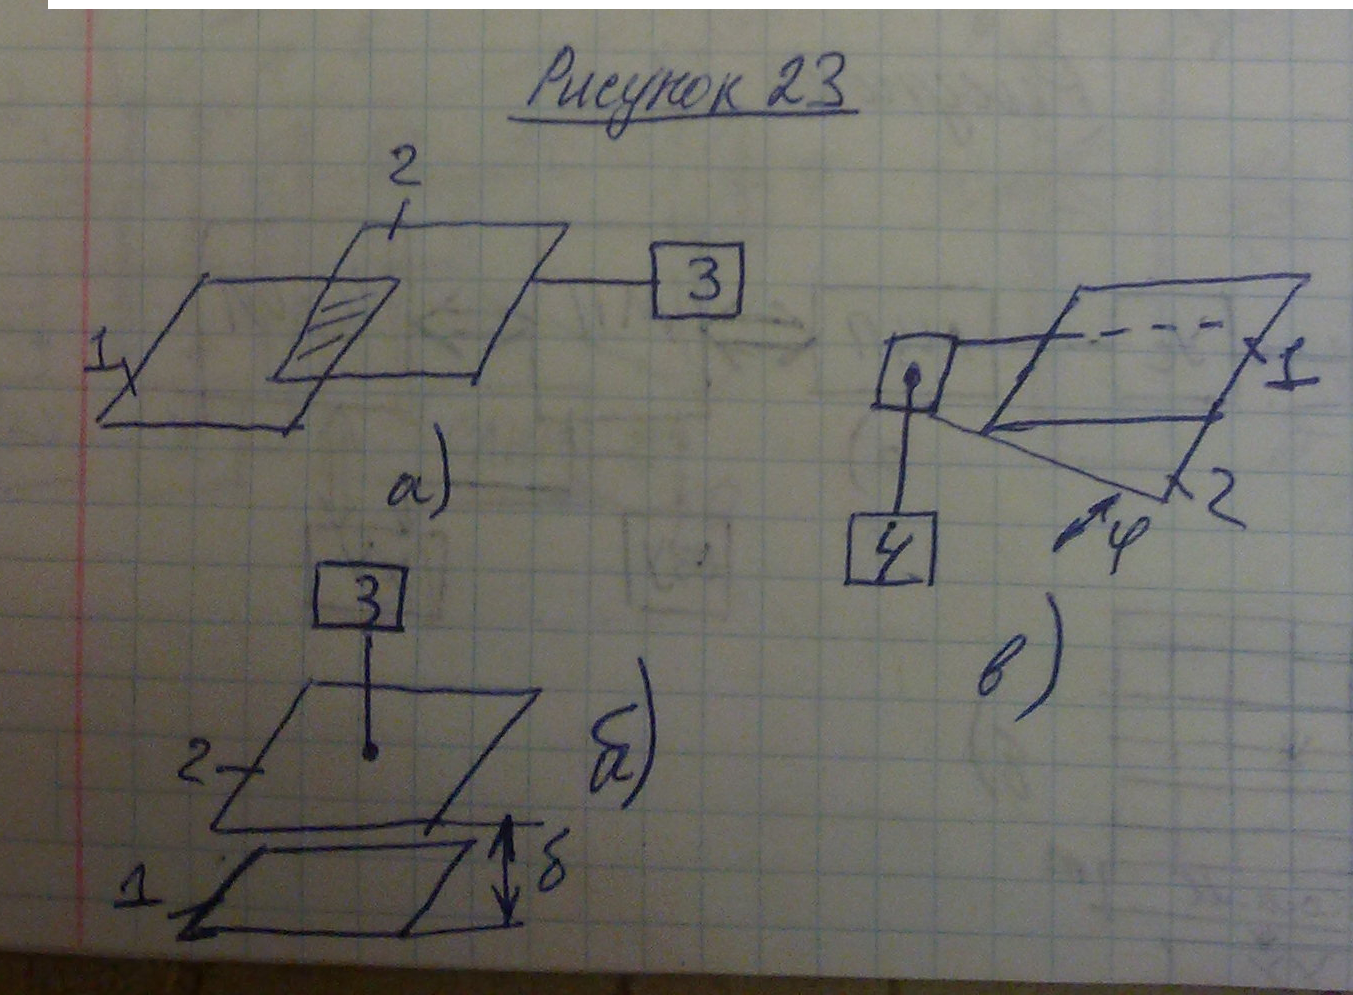 Рисунок 23
2
3
1
а)
1
2
φ
4
в)
3
2
б)
1
δ